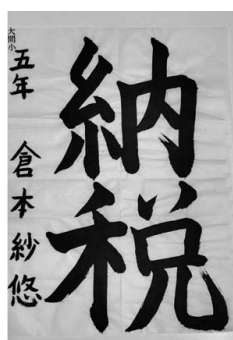 納税
大間小
五年 倉本紗悠